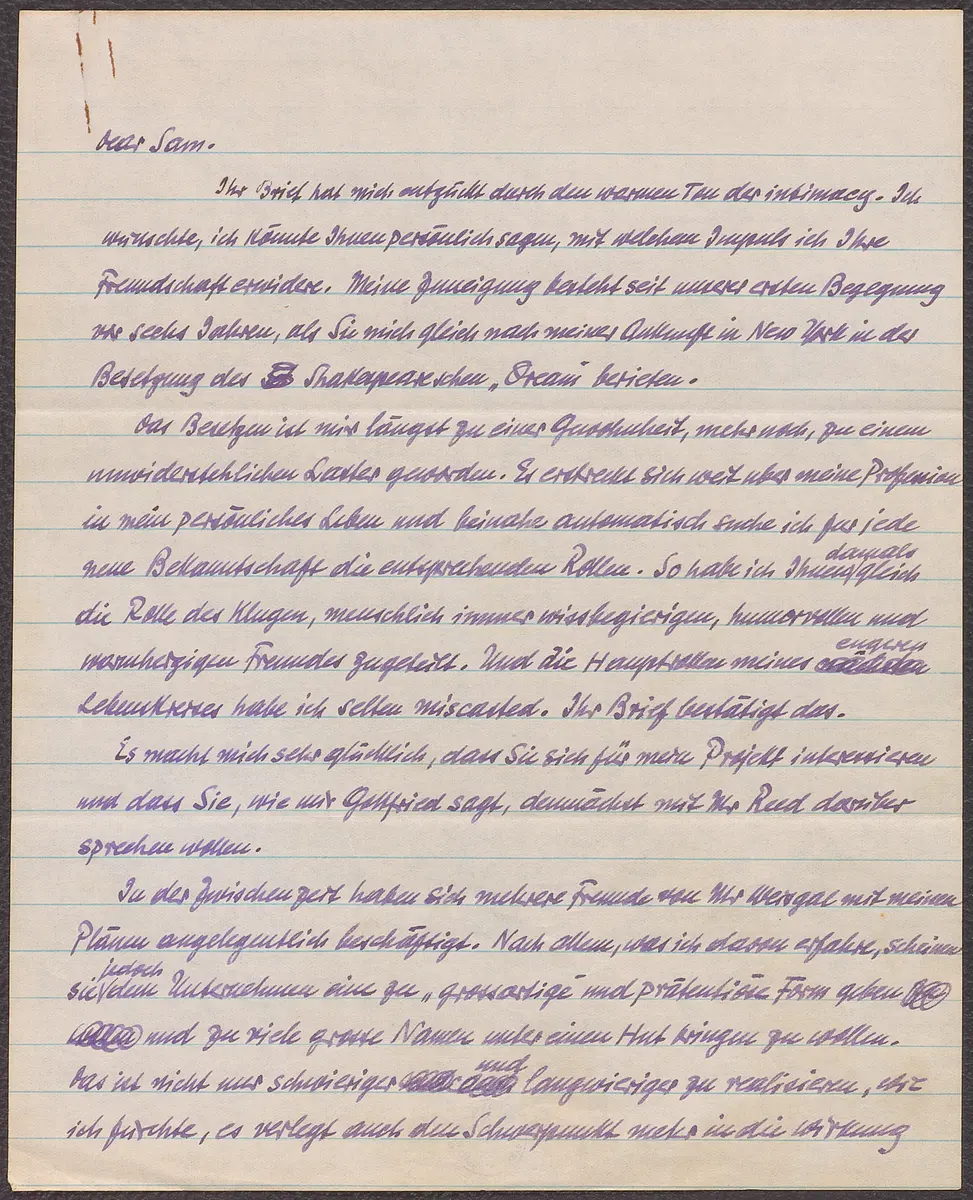 Dear Sam.
Ihr Brief hat mich entzückt durch den warmen Ton der intimacy. Ich
wünschte, ich könnte Ihnen persönlich sagen, mit welchem Impuls ich Ihre
Freundschaft erwidere. Meine Zuneigung besteht seit unserer ersten Begegnung
vor sechs Jahren, als Sie mich gleich nach meiner Ankunft in New York in der
Besetzung des Shakespeareschen „Dream" berieten.
Das Besetzen ist mir längst zu einer Gewohnheit, mehr noch, zu einem
unwiderstehlichen Laster geworden. Es erstreckt sich weit über meine Profession
in mein persönliches Leben und beinahe automatisch suche ich für jede
neue Bekanntschaft die entsprechenden Rollen. So habe ich Ihnen damals gleich
die Rolle des Klugen, menschlich immer wissbegierigen, humorvollen und
warmherzigen Freundes zugeteilt. Und die Hauptrollen meines engeren
Lebenskreises habe ich selten miscasted. Ihr Brief bestätigt das.
Es macht mich sehr glücklich, dass Sie sich für mein Projekt interessieren
und dass Sie, wie mir Gottfried sagt, demnächst mit Mr Reed darüber
sprechen wollen.
In der Zwischenzeit haben sich mehrere Freunde von Mr Weisgal mit meinen
Plänen angelegentlich beschäftigt. Nach allem, was ich davon erfahre, scheinen
sie jedoch dem Unternehmen eine zu „grossartige" und prätentiöse Form geben
und zu viele grosse Namen unter einen Hut bringen zu wollen.
Das ist nicht nur schwieriger und langwieriger zu realisieren,
ich fürchte, es verlegt auch den Schwerpunkt mehr in die Wirkung